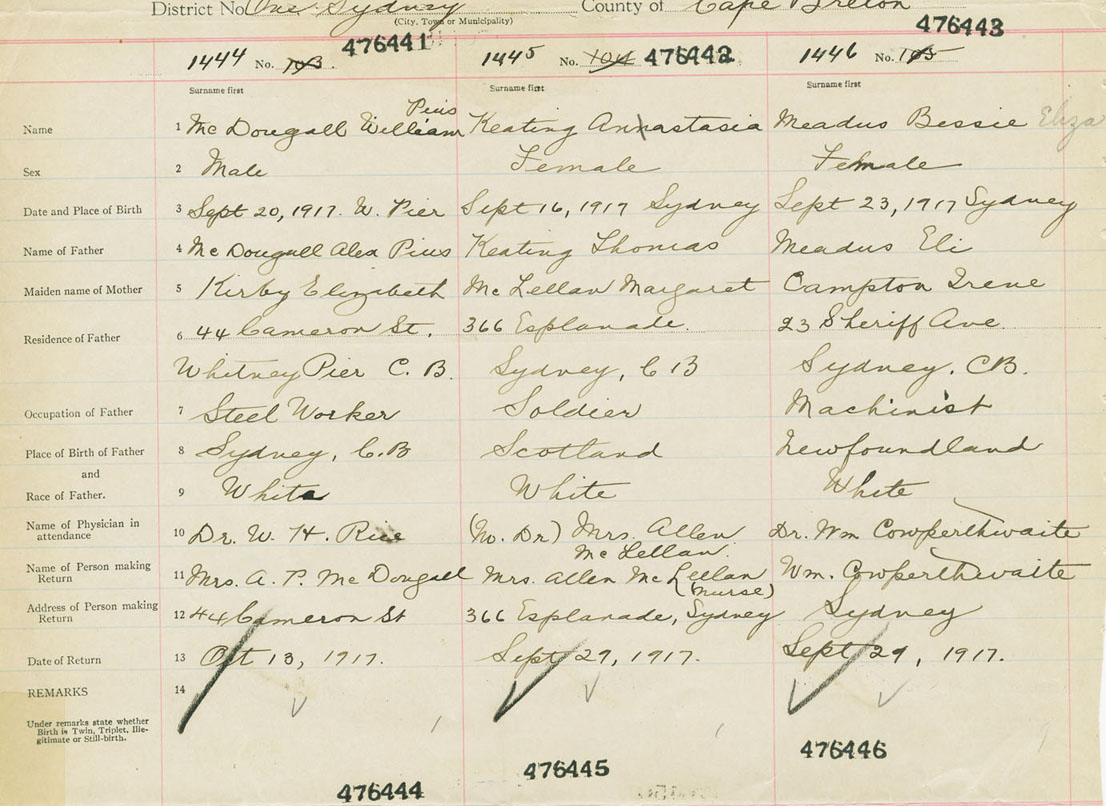 District No. One Sydney County of Cape Breton
(City, Town or Municipality)
476441 476442 476443
1444 No. 103 1445 No. 104 1446 No. 105
Surname first Surname first Surname first
Pius
Name 1 McDougall William Keating Annastasia Meadus Bessie Eliza
Sex 2 Male Female Female
Date and Place of Birth 3 Sept 20, 1917. W. Pier Sept 16, 1917 Sydney Sept 23, 1917 Sydney
Name of Father 4 McDougall Alex Pius Keating Thomas Meadus Eli
Maiden name of Mother 5 Kirby Elizabeth McLellan Margaret Campton Irene
Residence of Father 6 44 Cameron St. 366 Esplanade. 23 Sheriff Ave.
Whitney Pier C. B. Sydney, C B Sydney, CB.
Occupation of Father 7 Steel Worker Soldier Machinist
Place of Birth of Father 8 Sydney, C.B Scotland Newfoundland
and
Race of Father. 9 White White White
Name of Physician in attendance 10 Dr. W. H. Rice (No. Dr) Mrs. Allen Dr. Wm Cowperthwaite
McLellan.
Name of Person making Return 11 Mrs. A. P. McDougall Mrs. Allen McLellan Wm. Cowperthwaite
(nurse)
Address of Person making Return 12 44 Cameron St 366 Esplanade, Sydney Sydney
Date of Return 13 Oct 13, 1917. Sept 29, 1917. Sept 29, 1917.
REMARKS 14
Under remarks state whether
Birth is Twin, Triplet, Ille-
gitimate or Still-birth.
476444 476445 476446